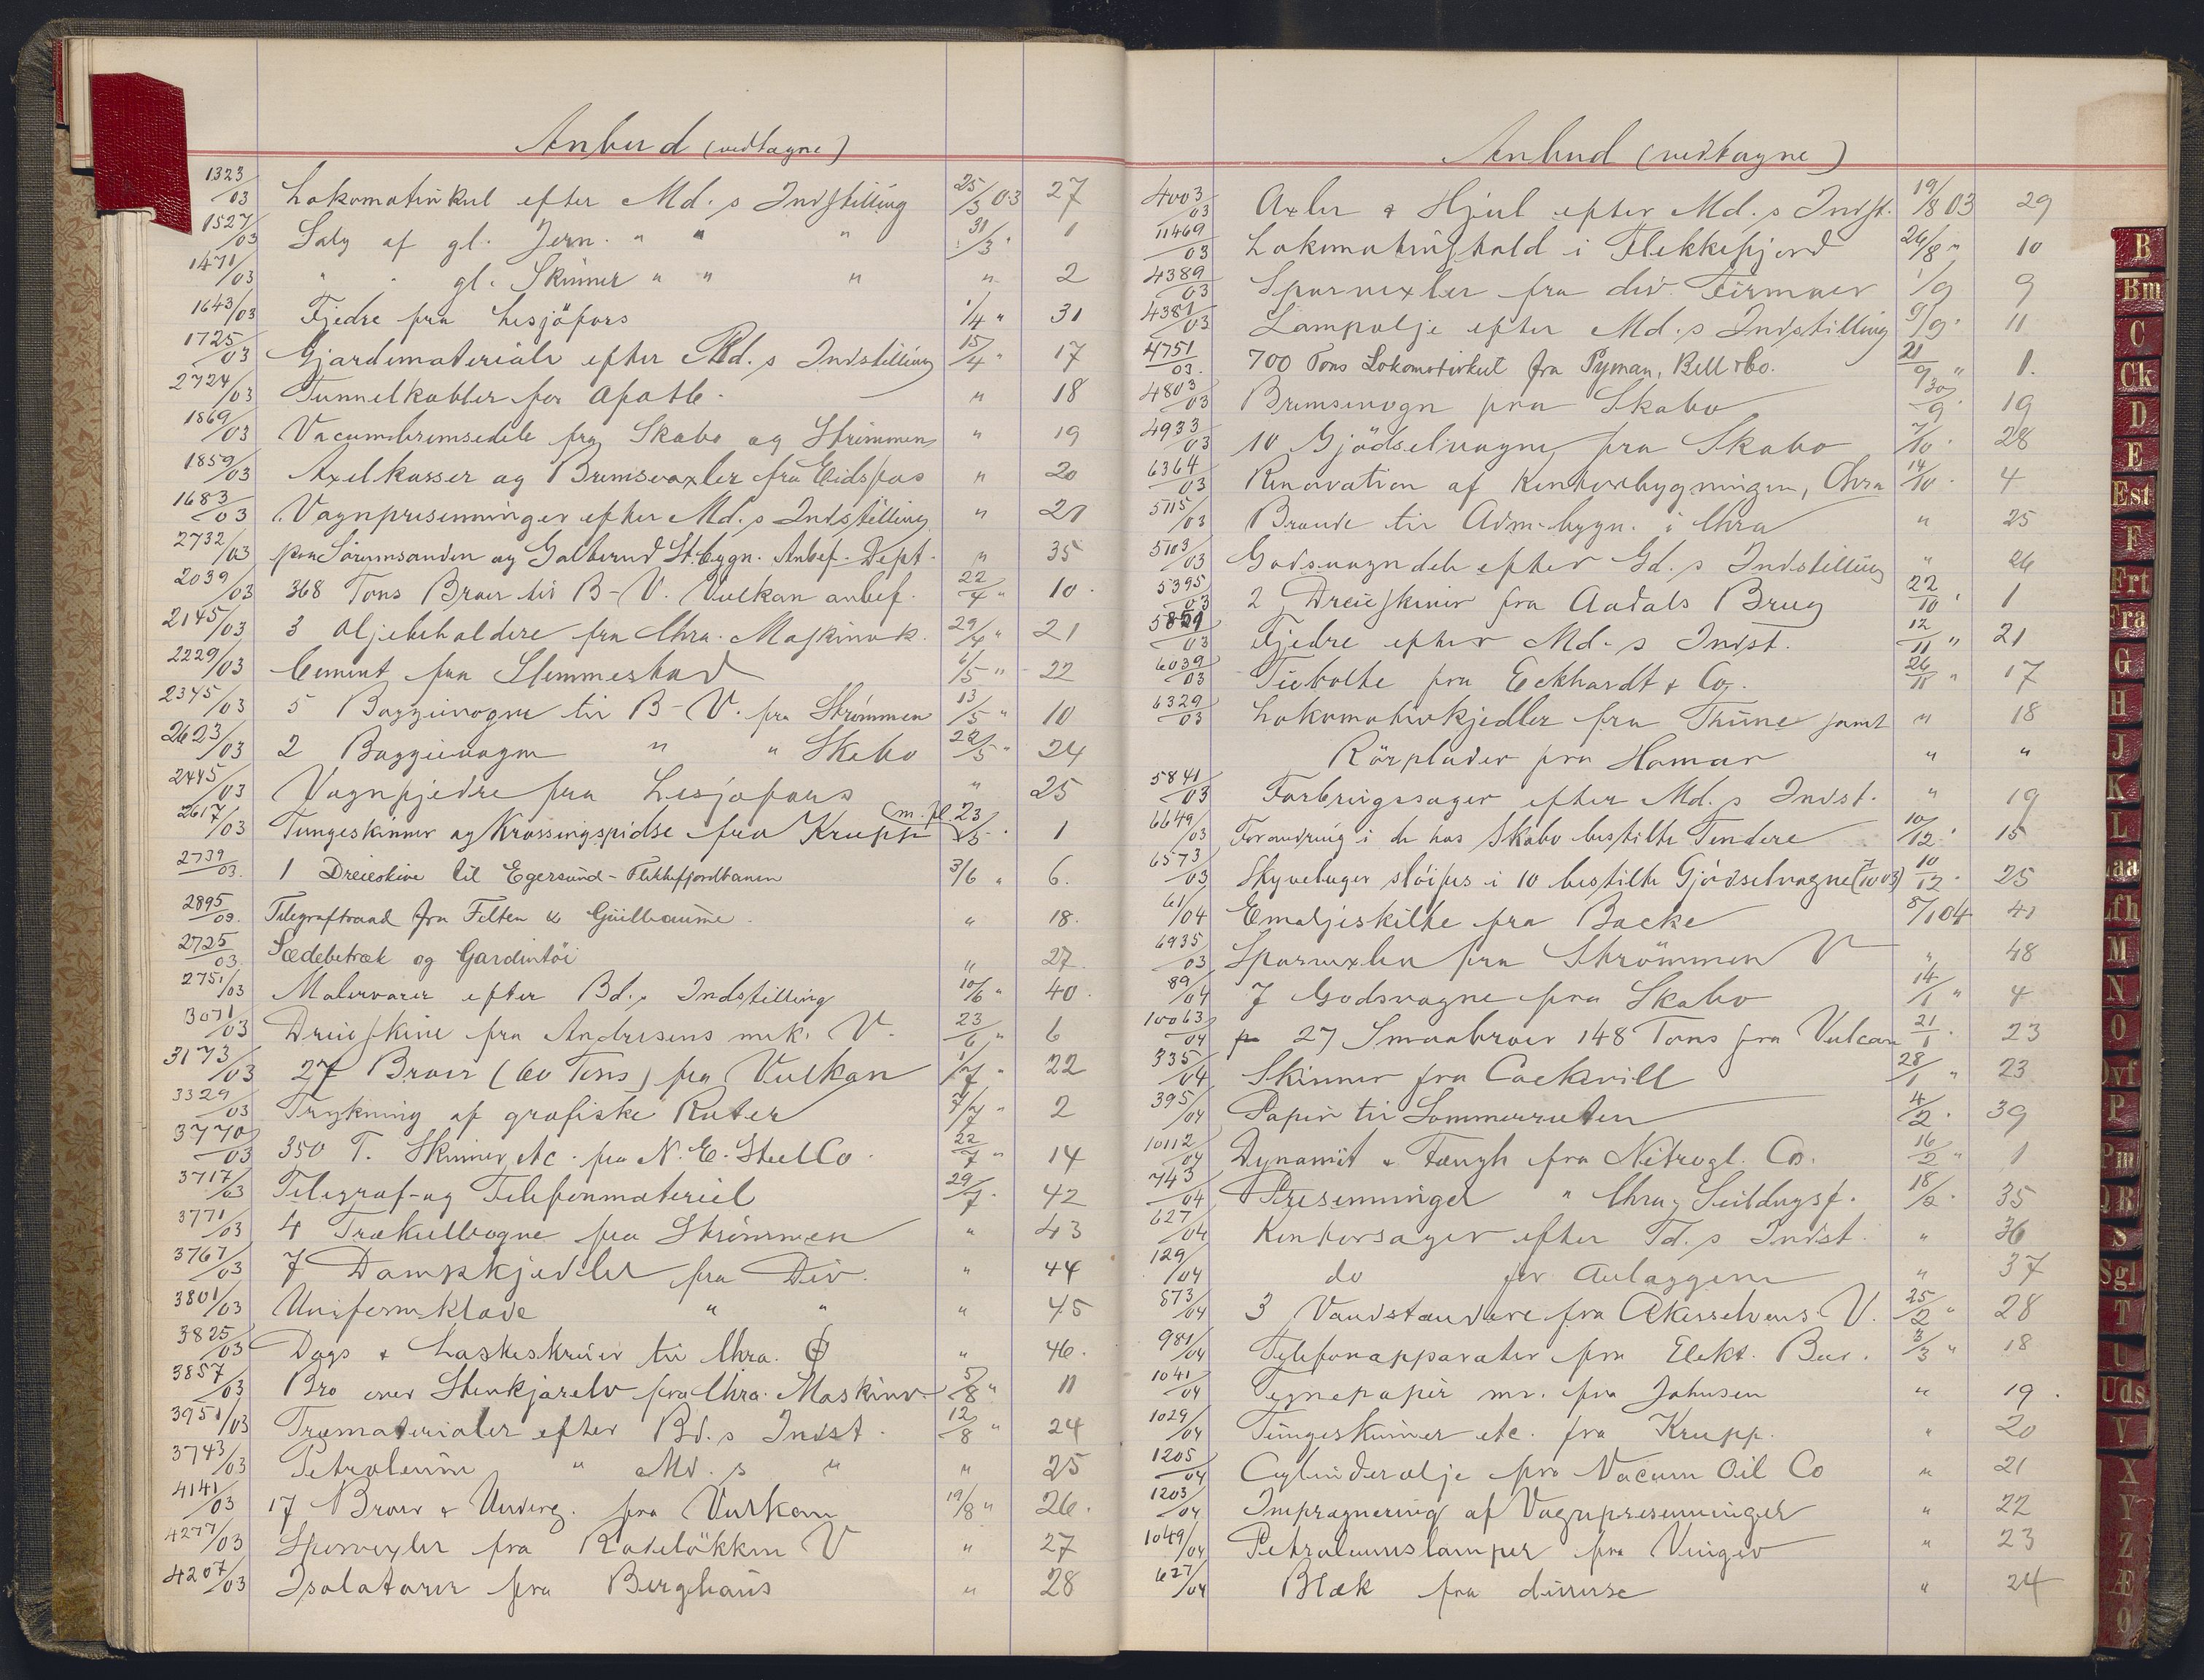 Anbud (vedtagne)
1323/03 Lokomotivkul efter Md.s Indstilling 25/3 03 27
1527/03 Salg af gl. Jern. " " " 31/3 " 1
1471/03 " " gl. Skinner " " " " 2
1643/03 Fjedre fra Lesjöfors 1/4 " 31
1725/03 Gjærdematerialr efter Bd.s Indstilling 15/4 " 17
2724/03 Tunnelkabler for " 18
1869/03 Vacumbremsedele fra Skabo og Strömmen " 19
1859/03 Axelkasser og Bremsevaxler fra Eidsfos " 20
1683/03 Vognpresenninger efter Md.s Indstilling " 21
2732/03 Sörumsanden og Galterud St.bygn. Anbef. Dept. " 35
2039/03 368 Tons Broer til B-V. Vulkan anbef. 22/4 " 10.
2145/03 3 Oljebeholdere fra Chra. Maskinvk. 29/4 " 21
2229/03 Cement fra Slemmestad 6/5 " 22
2345/03 5 Boggievogne til B-V. fra Strömmen 13/5 " 10
2623/03 2 Boggievogne " " Skabo 22/5 " 24
2445/03 Vognfjedre fra Lesjöfors " 25
2617/03 Tungeskinner og Krossingspidse fra Krupp m. fl. 23/5 " 1
2739/03. 1 Dreieskive til Egersund-Flekkefjordbanen 3/6 " 6.
2895/03. Telegraftraad fra Felten & Guilleaume. " 18.
2725/03. Sædebetræk og Gardintöi " 27.
2751/03 Malervarer efter Bd.s Indstilling 10/6 " 40.
3071/03 Dreieskive fra Andersens mek. V. 23/6 " 6
3173/03 27 Broer (60 Tons) fra Vulkan 1/7 " 22
3329/03 Trykning af grafiske Ruter 7/7 " 2
3770/03 350 T. Skinner etc. fra N. E. Steel Co. 22/7 " 14
3717/03 Telegraf- og Telefonmateriel 29/7 " 42
3771/03 4 Trækulvogne fra Strömmen " 43
3767/03 7 Dampkjedler fra Div. " 44
3801/03 Uniformklæde " " " 45
3825/03 Dogs & Laskeskruer til Chra. " 46.
3857/03 Bro over Stenkjærelv fra Chra. Maskinv 5/8 " 11
3951/03 Træmaterialer efter Bd.s Indst. 12/8 " 24
3743/03 Petroleum " Md.s " " 25
4141/03 17 Broer & Underg. fra Vulkan 19/8 " 26.
4277/03 Sporvexler fra Rodelökken V " 27
4207/03 Isolatorer fra Berghaus " 28
Anbud (vedtagne)
4003/03 Axler & Hjul efter Md.s Indst. 19/8 03 29
11469/03 Lokomotivstald i Flekkefjord 26/8 " 10
4389/03 Sporvexler fra div. Firmaer 1/9 9
4381/03 Lampolje efter Md.s Indstilling 9/9 " 11
4751/03. 700 Tons Lokomotivkul fra Pyman, Bell & Co. 21/9 " 1.
4803/03 Bremsevogn fra Skabo 30/9 " 19
4933/03 10 Gjödselvogne fra Skabo 7/10 " 28
6364/03 Renovation af Kontorbygningen, Chra 14/10 " 4
5115/03 Brænde til Adm.bygn. i Chra " 25
5103/03 Godsvogndele efter Gd.s Indstilling " 26
5395/03 2 Dreieskiver fra Aadals Brug 22/10 " 1
5829/03 Fjedre efter Md.s Indst. 12/11 " 21
6039/03 Tirbolte fra Eckhardt & Co. 26/11 " 17
6329/03 Lokomotivkjedler fra Thune samt " 18
Rörplader fra Hamar " "
5841/03 Farbringssager efter Md.s Indst. " 19
6649/03 Forandring i de hos Skabo bestilte Tendere 10/12 " 15
6573/03 Skyveluger slöifes i 10 bestilte Gjödselvogne (7/10 03) 10/12 " 25
61/04 Emaljeskilte fra Backe 8/1 04 41
6935/03 Sporvexler fra Strömmen V " 48
89/04 7 Godsvogne fra Skabo 14/1 " 4
10063/04 27 Smaabroer 148 Tons fra Vulcan 21/1 " 23
335/04 Skinner fra Cockerill 28/1 " 23
395/04 Papir til Sommerruten 4/2 " 39
10112/04 Dynamit & Fængh. fra Nitrogl. Co. 16/2 " 1
743/04 Presenninger " Chra. Seildugsf. 18/2 " 35
627/04 Kontorsager efter Td.s Indst. " 36
129/04 do for Anlæggene " 37
873/04 3 Vandstændere fra Akerselvens V. 25/2 " 28
981/04 Telefonapparater fra Elekt. Bur. 3/3 " 18
1041/04 Tegnepapir m.v. fra Johnsen " 19.
1029/04 Tungeskinner etc. fra Krupp. " 20
1205/04 Cylinderolje fra Vacum Oil Co " 21
1203/04 Imprægnering af Vognpresenninger " 22
1049/04 Petroleumslamper fra Vinger " 23
627/04 Blæk fra diverse " 24
B
Bm
C
Ck
D
E
Est
F
Frt
Fra
G
H
J
K
L
M
N
O
P
Pm
QR
S
Sgl
T
U
Uds
V
X
Y
Z
Æ
Ø